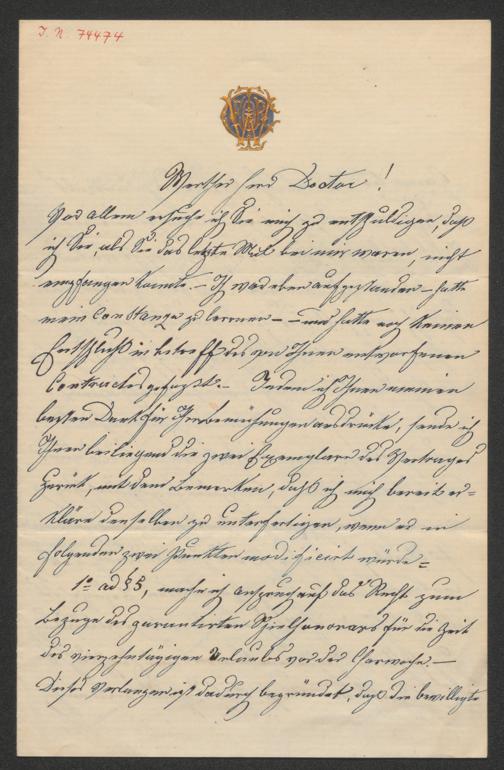 I. N. 74474
Werther Herr Doctor!
Vor allem ersuche ich Sie mich zu entschuldigen, daß
ich Sie, als Sie das letzte Mal bei mir waren, nicht
empfangen konnte. – Ich war eben aufgestanden – hatte
mein Constanze zu lernen – und hatte noch keinen
Entschluß in betreff des von Ihnen entworfenen
Contractes gefaßt. – Indem ich Ihnen meinen
besten Dank für Ihre Bemühungen ausdrücke, sende ich
Ihnen beiliegend die zwei Exemplare des Vertrages
zurück, mit dem Bemerken, daß ich mich bereit er=
kläre denselben zu unterfertigen, wenn er in
folgenden zwei Punkten modificirt würde =
1º ad § 5, mache ich Anspruch auf das Recht zum
Bezuge des garantirten Spielhonorars für die Zeit
des vierzehntägigen Urlaubs vor der Charwoche. –
Dieses Verlangen ist dadurch begründet, daß die bewilligte